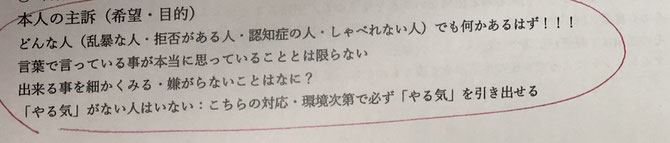 本人の主訴（希望・目的）
どんな人（乱暴な人・拒否がある人・認知症の人・しゃべれない人）でも何かあるはず！！！
言葉で言っている事が本当に思っていることとは限らない
出来る事を細かくみる・嫌がらないことはなに？
「やる気」がない人はいない：こちらの対応・環境次第で必ず「やる気」を引き出せる